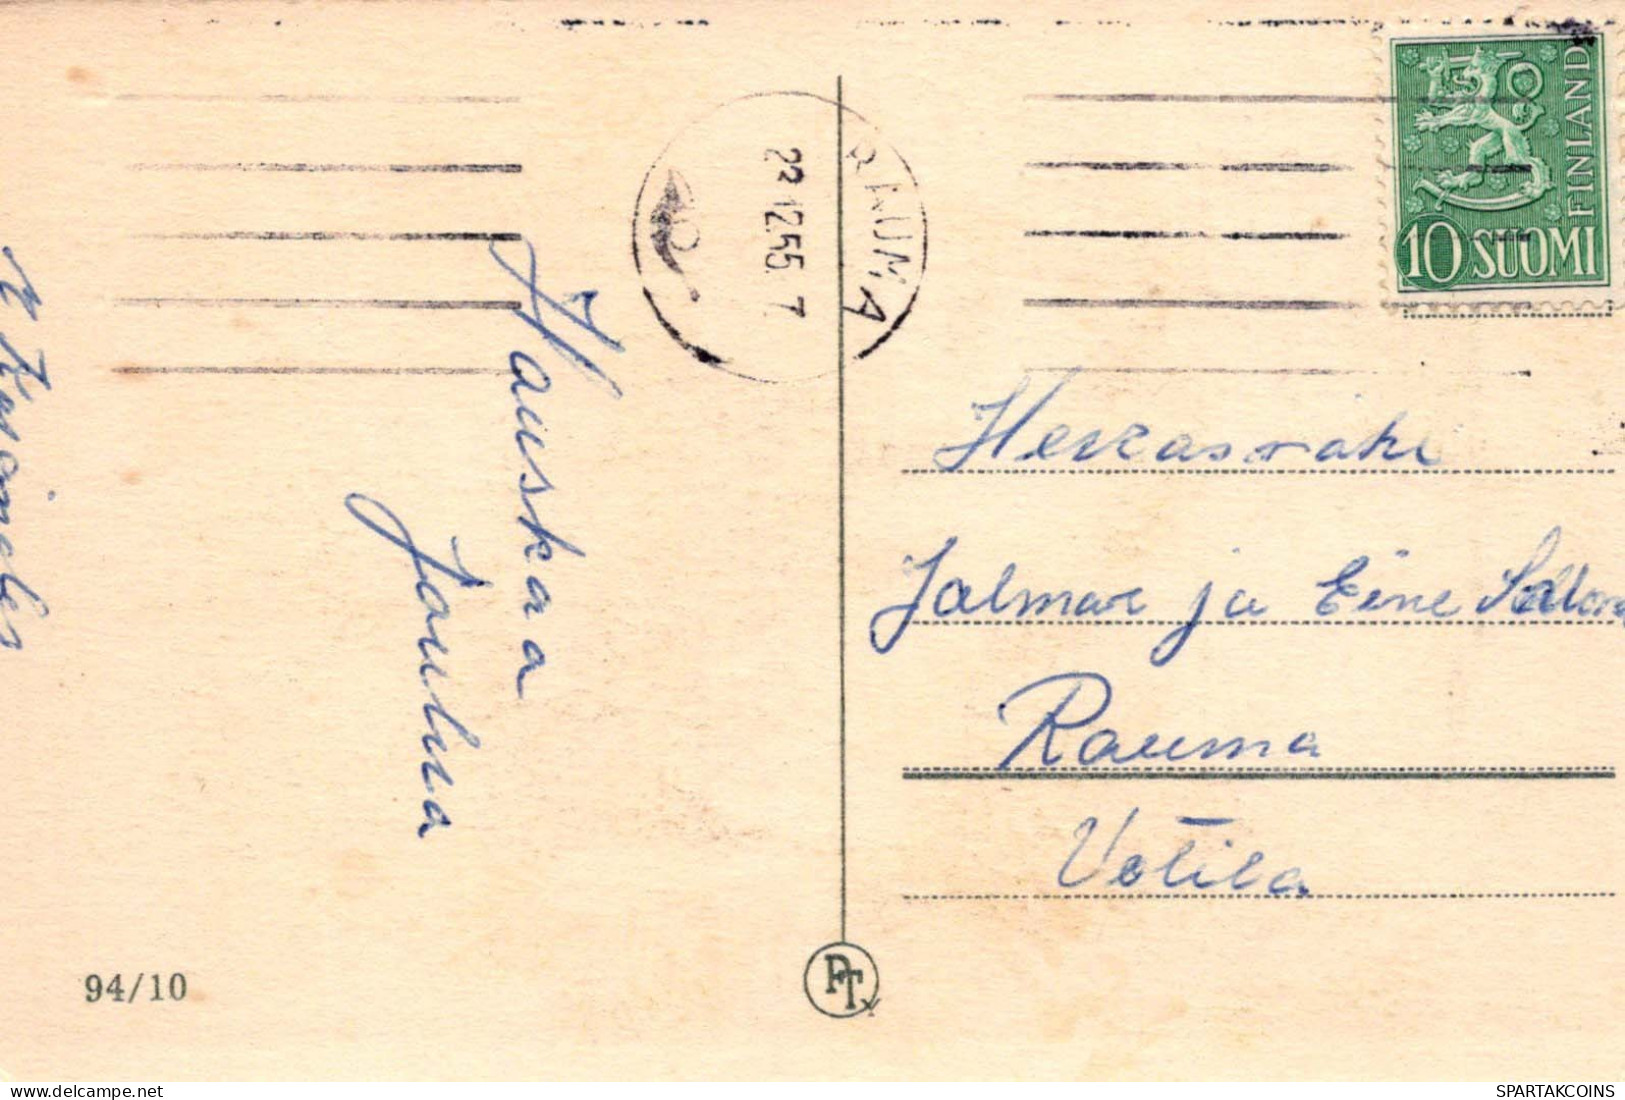 Hauskaa
Joulua
94/10
RAUMA
22.12.55. 7
FINLAND
10 SUOMI
Herrasväki
Jalmar ja Eine
Rauma
Votila
PTy
SPARTAKCOINS
www.delcampe.net